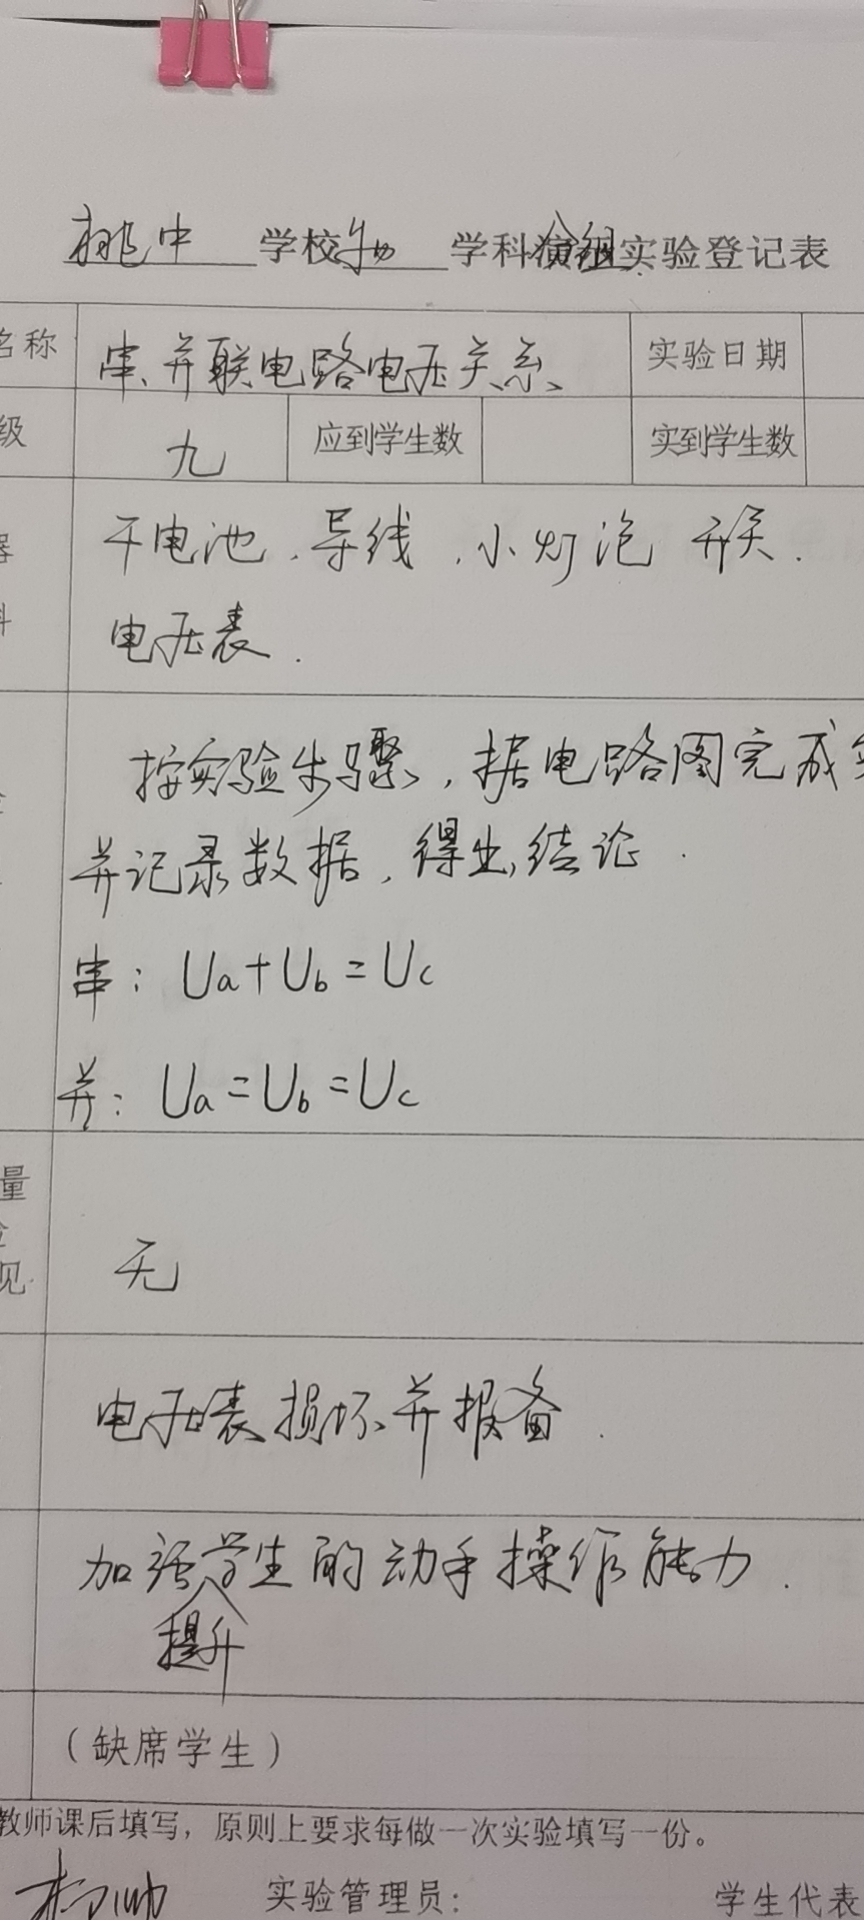 桃中 学校 物 学科 分组 实验登记表
名称 串、并联电路电压关系 实验日期
级 九 应到学生数 实到学生数
器 干电池、导线、小灯泡 开关.
料 电压表.
按实验步骤,据电路图完成实
并记录数据,得出结论.
串: Ua+Ub=Uc
并: Ua=Ub=Uc
量
见 无
电压表损坏并报备.
加强学生的动手操作能力.
提升
(缺席学生)
教师课后填写,原则上要求每做一次实验填写一份。
实验管理员: 学生代表